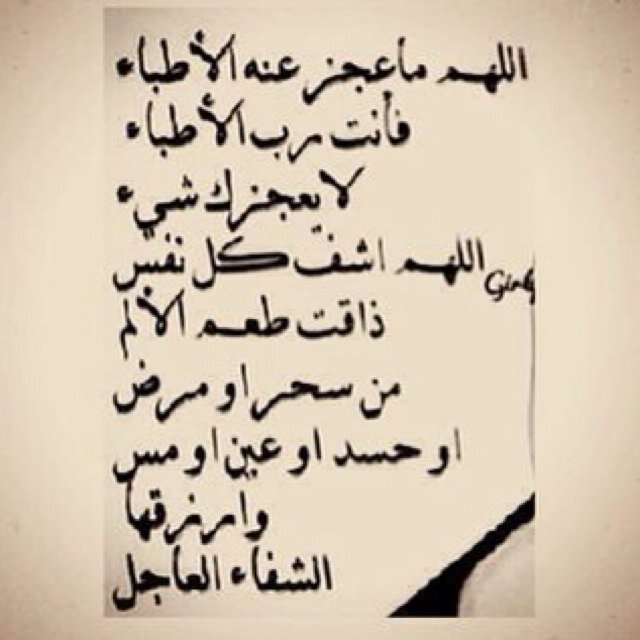 اللهم ماعجز عنه الأطباء
فأنت رب الأطباء
لا يعجزك شيء
اللهم اشف كل نفس
ذاقت طعم الألم
من سحر او مرض
او حسد او عين او مس
وارزقها
الشفاء العاجل